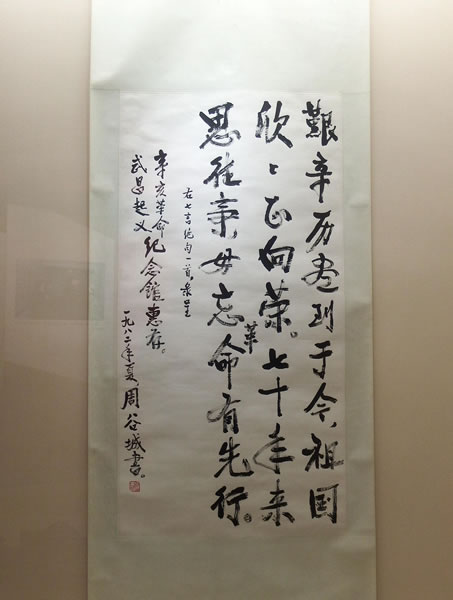 艱辛历盡到于今,祖国
欣〻正向荣。七十年来
思往事,毋忘革命有先行。
右七言绝句一首,录呈
辛亥革命
武昌起义
纪念馆惠存。
一九八二年夏,周谷城书。